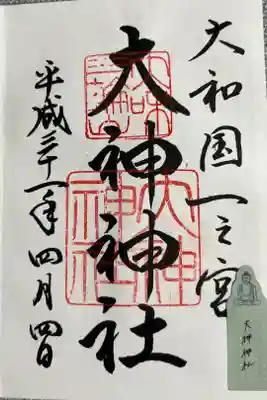 大和国一之宮
大神神社
平成三十一年四月四日
大神
神社
大神神社